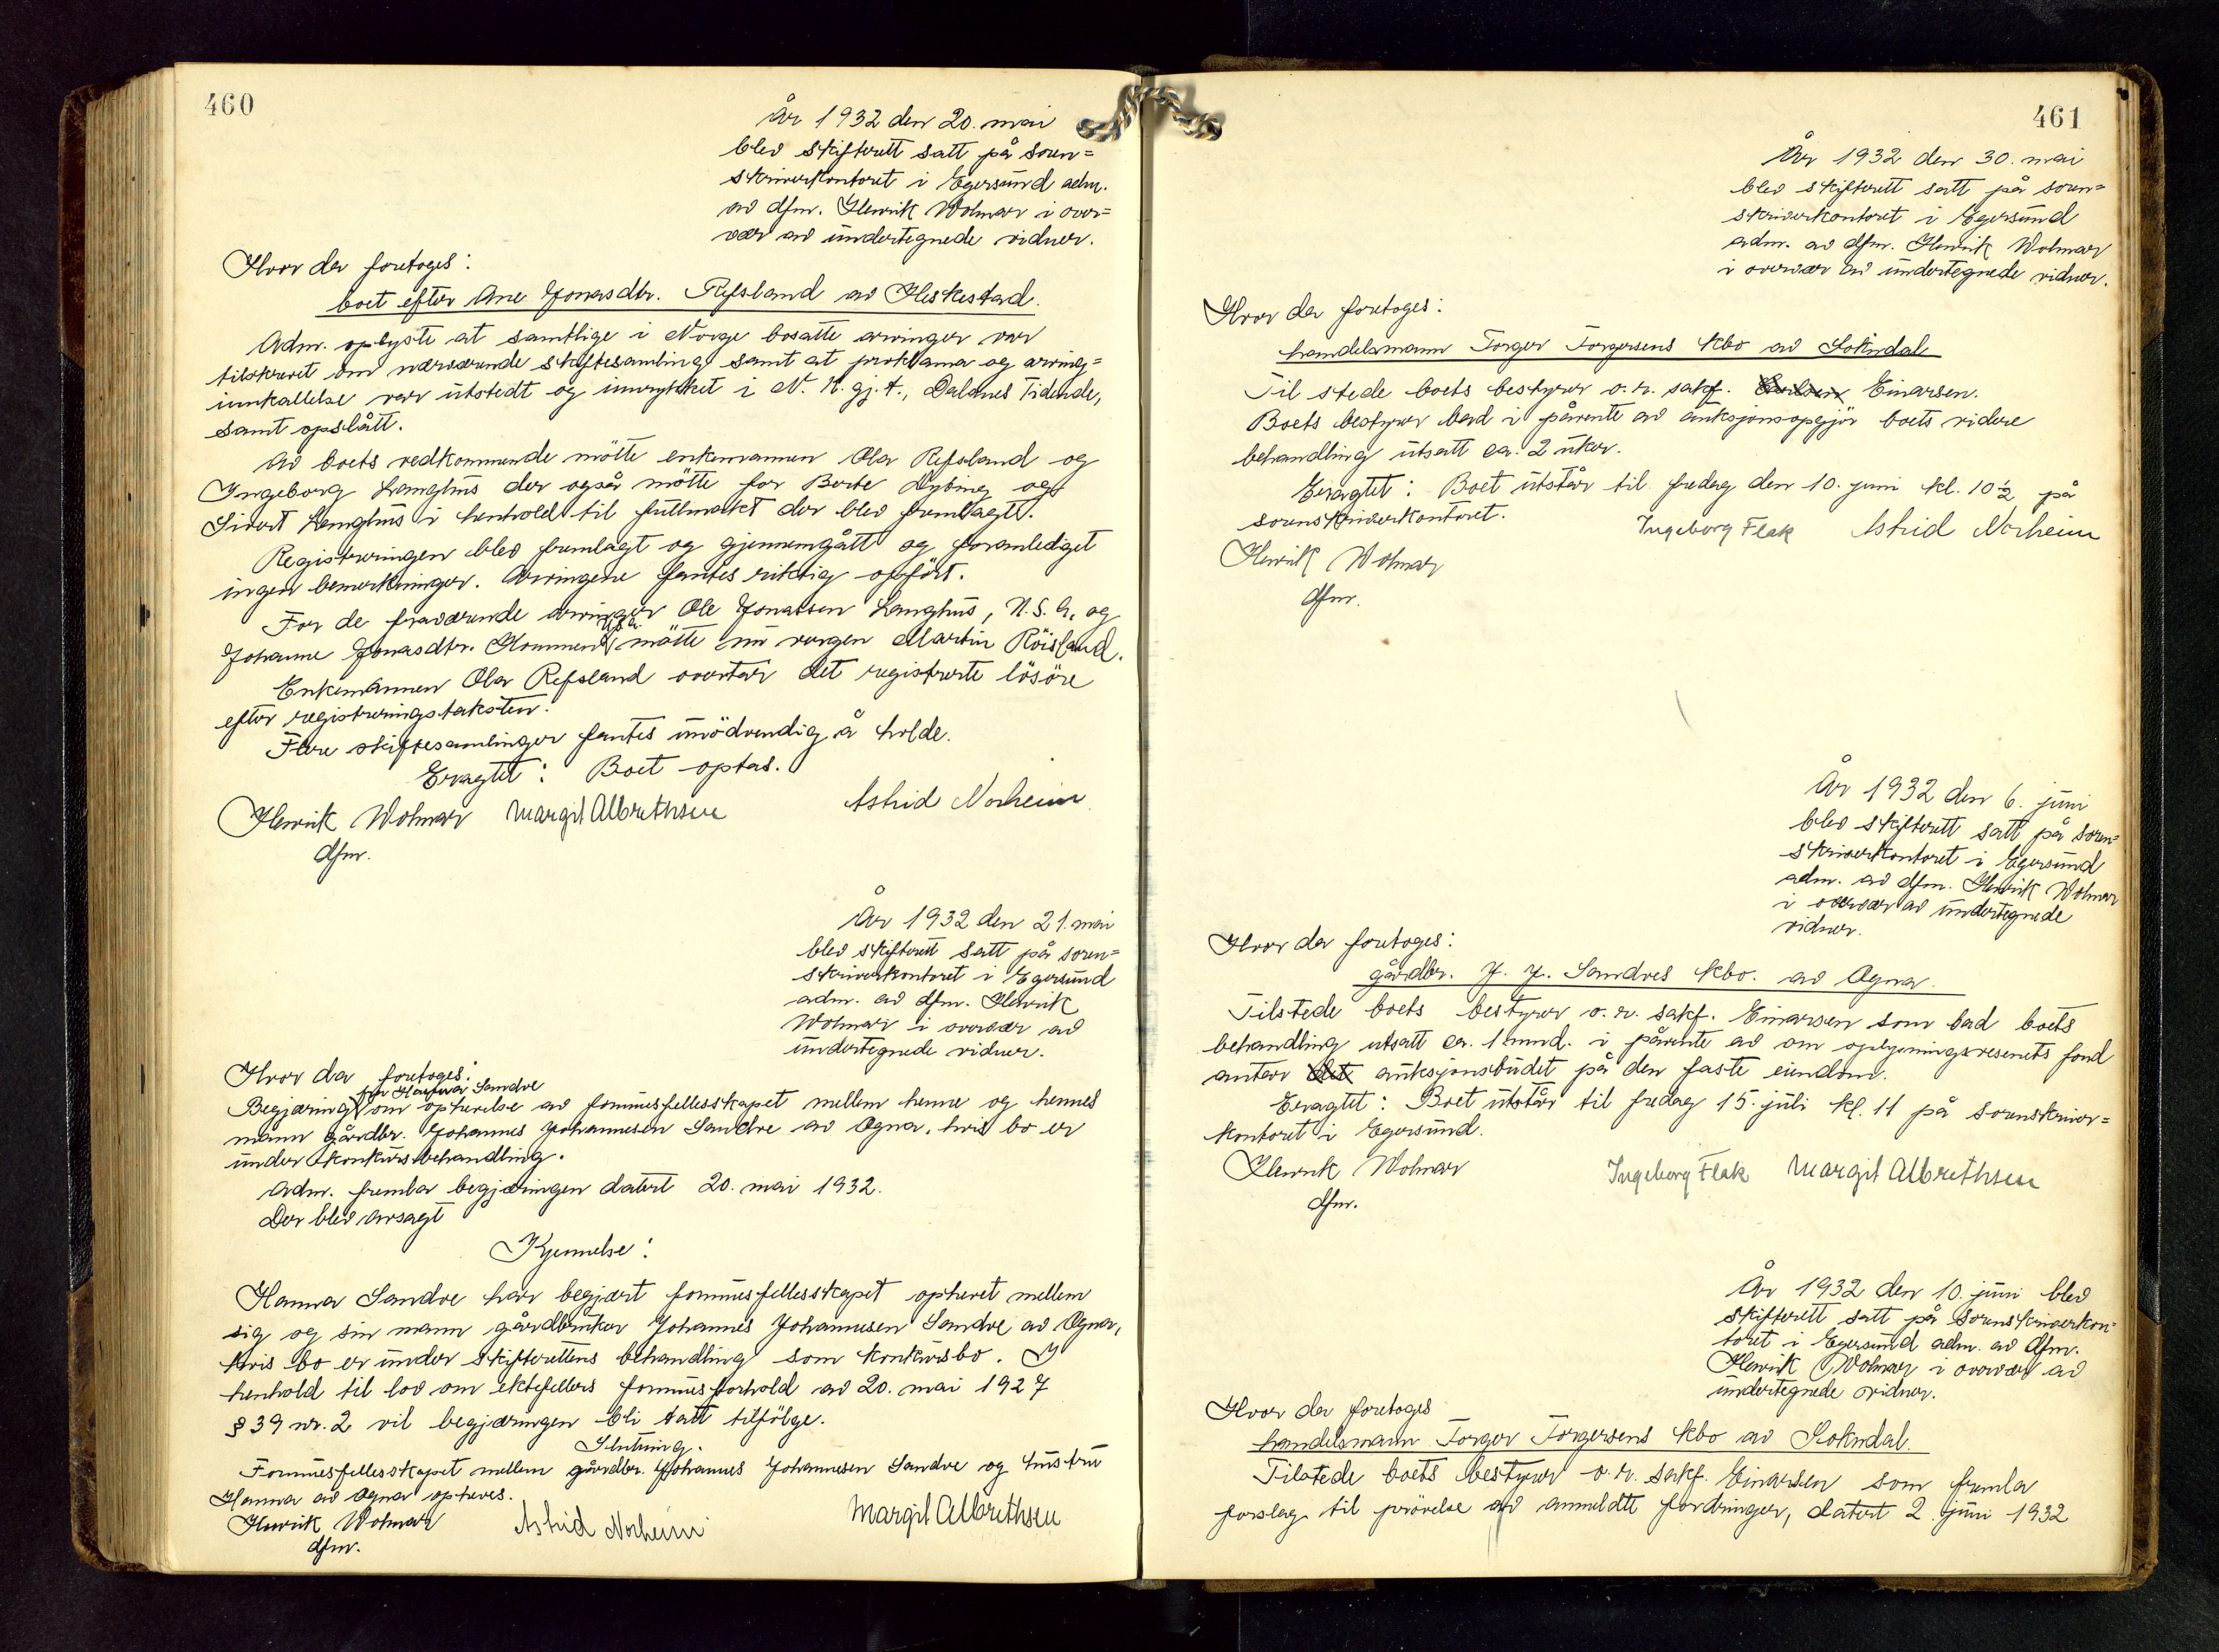 460
År 1932 den 20. mai
blev skifterett satt på soren=
skriverkontoret i Egersund adm.
av dfm. Henrik Wolmar i over=
vær av undertegnede vidner.
Hvor da foretoges:
boet efter Ane Jonasdtr. Refsland av Heskestad.
Adm. oplyste at samtlige i Norge bosatte arvinger var
tilskrevet om nærværende skiftesamling samt at proklama og arving=
innkallelse var utstedt og innrykket i N. K. gj. t., Dalanes Tidende,
samt opslått.
Av boets vedkommende mötte enkemannen Ola Refsland og
Ingeborg Langhus der også mötte for Berte Nybing og
Sivert Langhus i henhold til fullmakt der blev fremlagt.
Registreringen blev fremlagt og gjennemgått og foranlediget
ingen bemerkninger. Arvingene fantes riktig opfört.
For de fraværende arvinger Ole Jonassen Langhus, U.S.A. og
Johanne Jonasdtr. Hommen U.S.A. mötte nu vergen Martin Röisland.
Enkemannen Ola Refsland overtar det registrerte lösöre
efter registreringstaksten.
Flere skiftesamlinger fantes unödvendig å holde.
Eragtet: Boet optas.
Henrik Wolmar Margit Albrethsen Astrid Norheim
dfm.
År 1932 den 21. mai
blev skifterett satt på soren=
skriverkontoret i Egersund
adm. av dfm. Henrik
Wolmar i overvær av
undertegnede vidner.
Hvor da foretoges:
Begjæring fra Hanna Sandve om ophevelse av formuesfellesskapet mellem henne og hennes
mann gårdbr. Johannes Johannesen Sandve av Ogna, hvis bo er
under konkursbehandling.
Adm. fremla begjæringen datert 20. mai 1932.
Der blev avsagt
Kjennelse:
Hanna Sandve har begjært formuesfellesskapet ophevet mellem
sig og sin mann gårdbruker Johannes Johannesen Sandve av Ogna,
hvis bo er under skifterettens behandling som konkursbo. I
henhold til lov om ektefellers formuesforhold av 20. mai 1927
§ 39 nr. 2 vil begjæringen bli tatt tilfölge.
Slutning.
Formuesfellesskapet mellem gårdbr. Johannes Johannesen Sandve og hustru
Hanna av Ogna opheves.
Henrik Wolmar Astrid Norheim Margit Albrethsen
dfm.
461
År 1932 den 30. mai
blev skifterett satt på soren=
skriverkontoret i Egersund
adm. av dfm. Henrik Wolmar
i overvær av undertegnede vidner.
Hvor da foretoges:
handelsmann Torger Torgersens kbo av Sokndal
Til stede boets bestyrer o.r. sakf. Einarsen.
Boets bestyrer bad i påvente av auksjonsopgjör boets videre
behandling utsatt ca. 2 uker.
Eragtet: Boet utstår til fredag den 10. juni kl. 10½ på
sorenskriverkontoret.
Ingeborg Flak Astrid Norheim
Henrik Wolmar
dfm.
År 1932 den 6. juni
blev skifterett satt på soren=
skriverkontoret i Egersund
adm. av dfm. Henrik Wolmar
i overvær av undertegnede
vidner.
Hvor da foretoges:
gårdbr. J. J. Sandves kbo. av Ogna.
Tilstede boets bestyrer o.r. sakf. Einarsen som bad boets
behandling utsatt ca. 1 mnd. i påvente av om oplysningsvesenets fond
antar det auksjonsbudet på den faste eiendom.
Eragtet: Boet utstår til fredag 15. juli kl. 11 på sorenskriver=
kontoret i Egersund.
Henrik Wolmar Ingeborg Flak Margit Albrethsen
dfm.
År 1932 den 10. juni blev
skifterett satt på sorenskriverkon=
toret i Egersund adm. av dfm.
Henrik Wolmar i overvær av
undertegnede vidner.
Hvor da foretoges
handelsmann Torger Torgersens kbo av Sokndal.
Tilstede boets bestyrer o.r. sakf. Einarsen som fremla
forslag til prövelse av anmeldte fordringer, datert 2. juni 1932